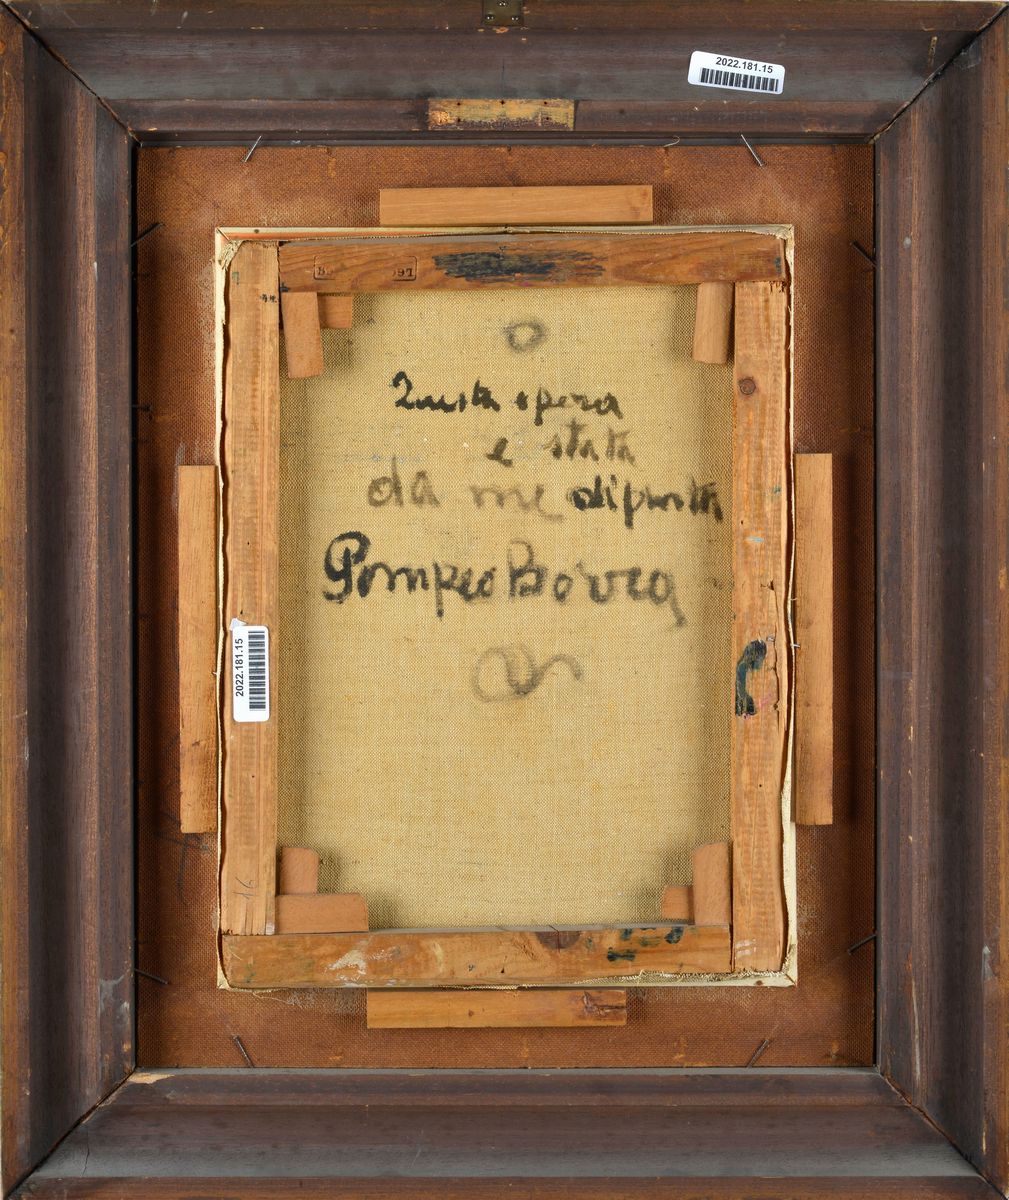 2022.181.15
Questa opera
e stata
da me dipinta
Pompeo Borra
2022.181.15
16